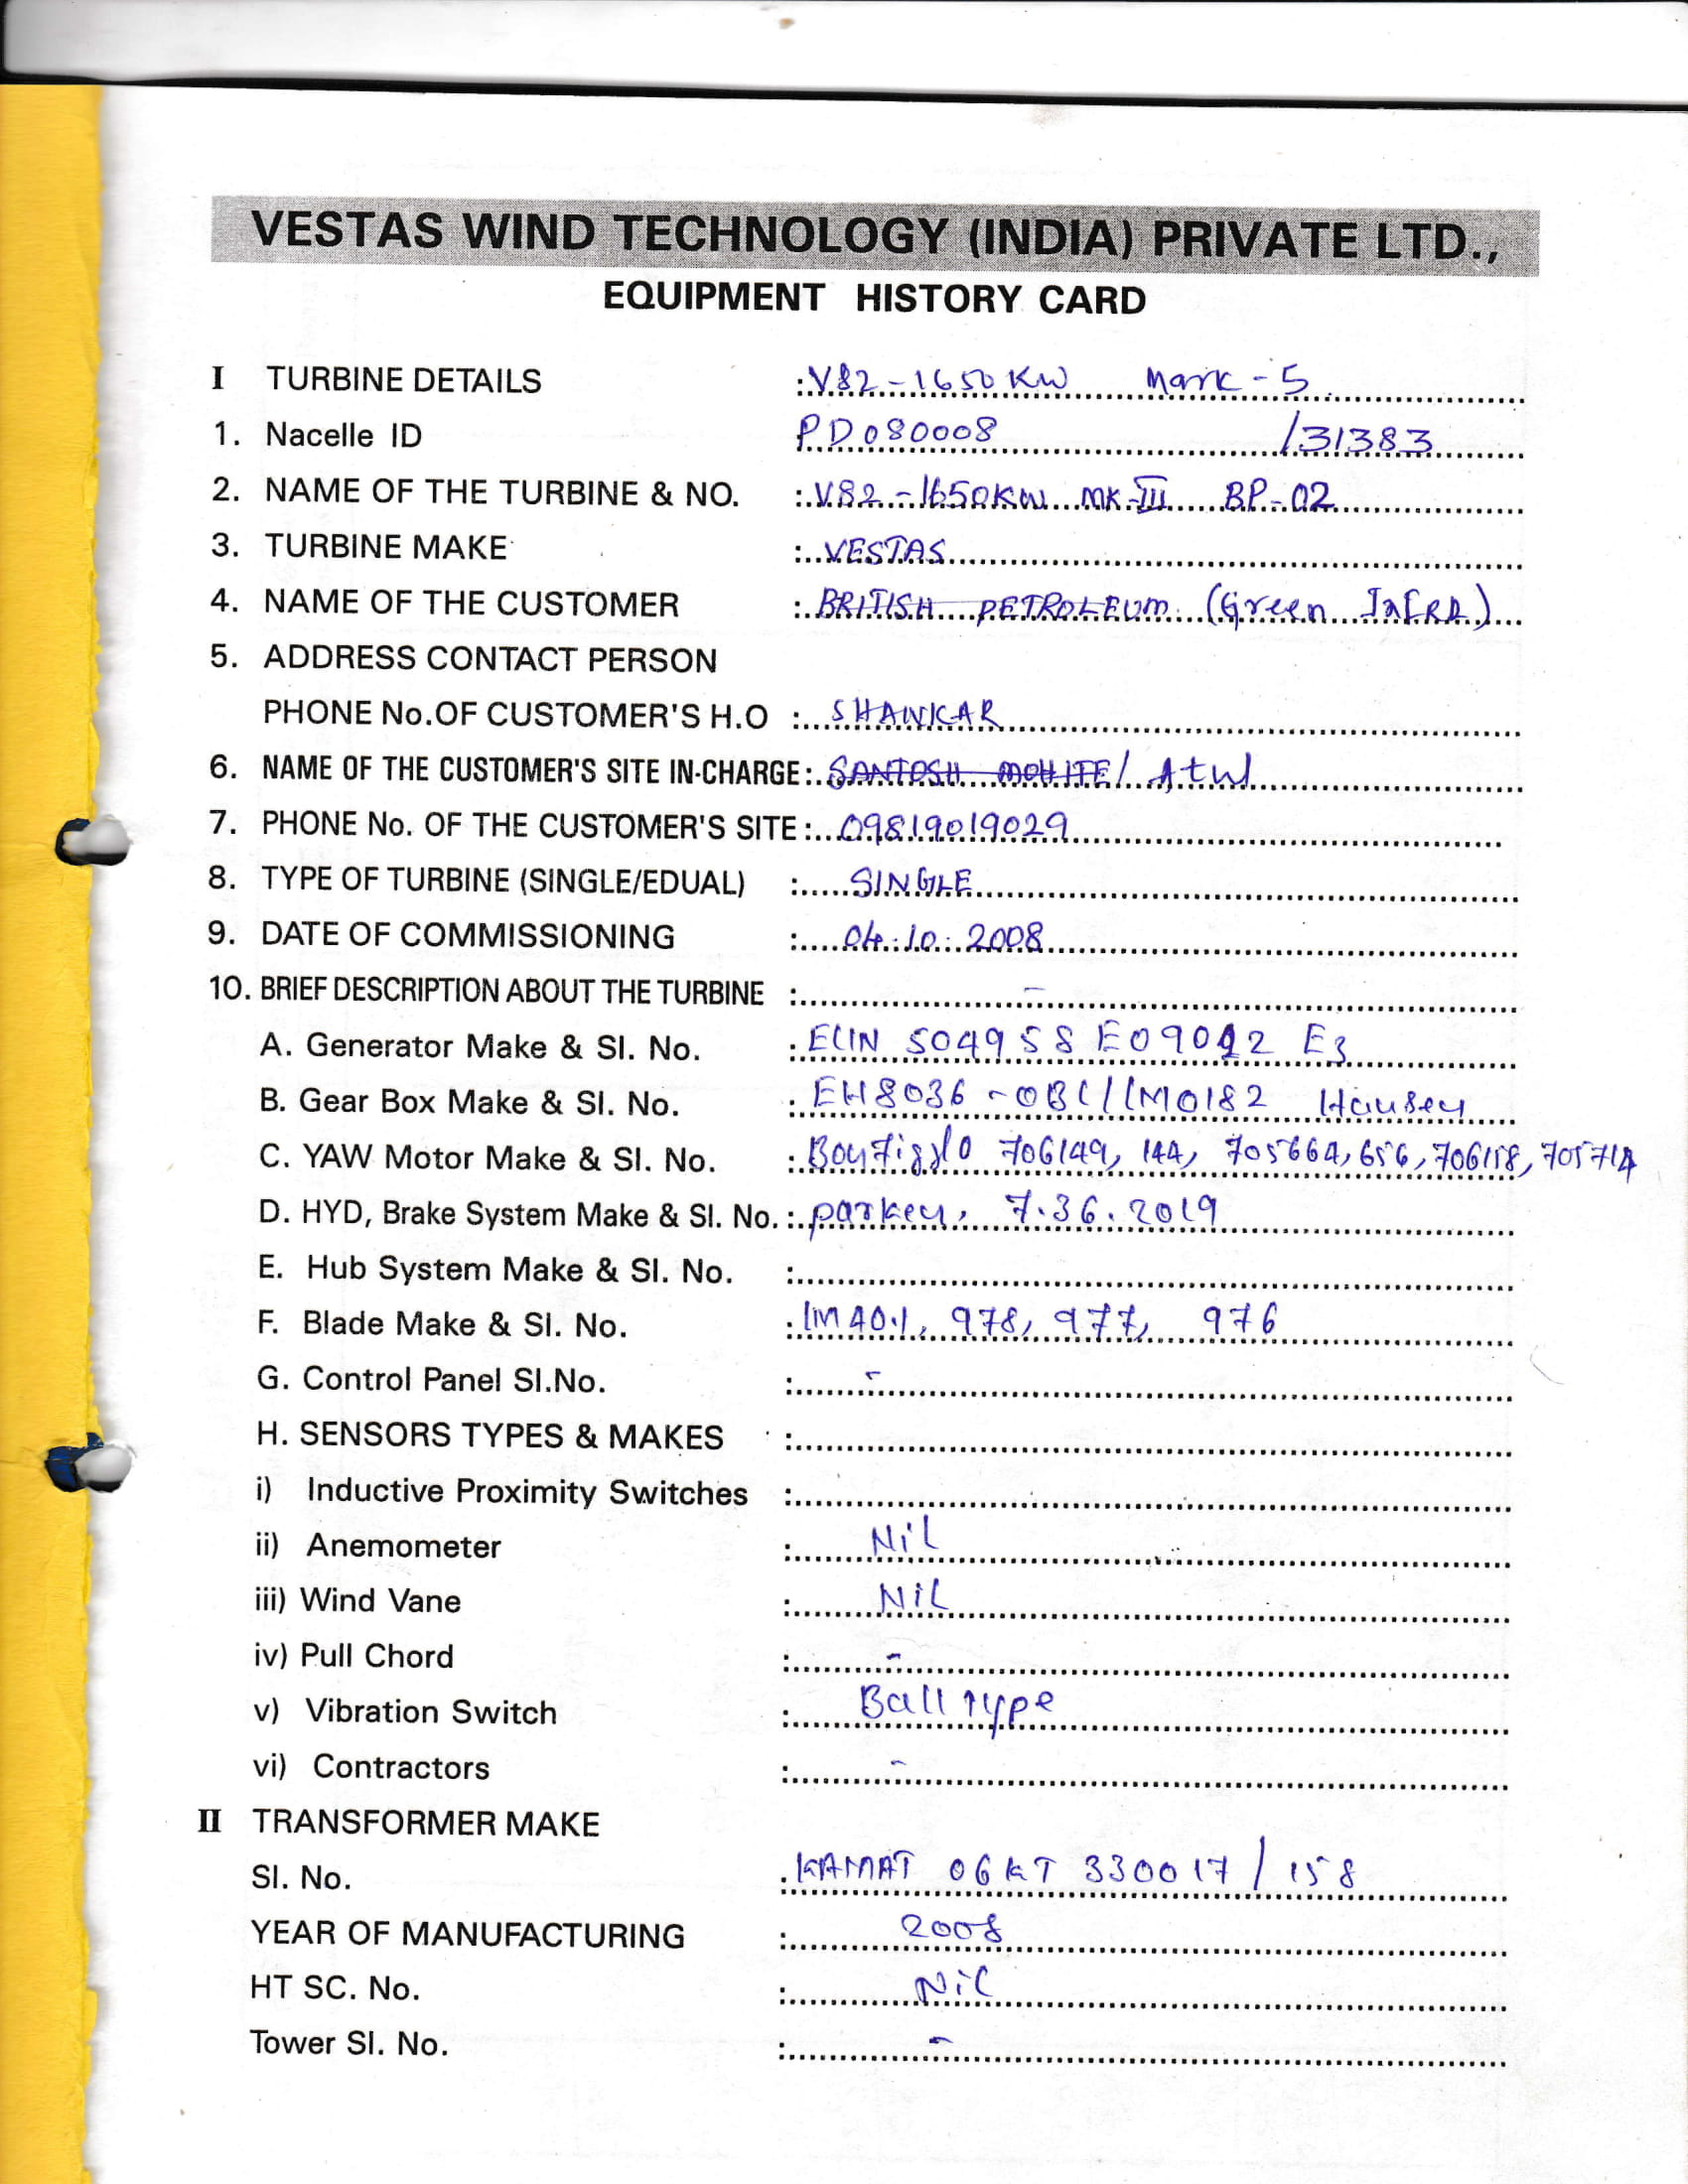 VESTAS WIND TECHNOLOGY (INDIA) PRIVATE LTD.,
EQUIPMENT HISTORY CARD
I TURBINE DETAILS : V82-1650KW Mark-5
1. Nacelle ID PD080008 /31383
2. NAME OF THE TURBINE & NO. : V82-1650KW MK-III BP-02
3. TURBINE MAKE : VESTAS
4. NAME OF THE CUSTOMER : BRITISH PETROLEUM (Green Infra)
5. ADDRESS CONTACT PERSON
PHONE No.OF CUSTOMER'S H.O : SHANKAR
6. NAME OF THE CUSTOMER'S SITE IN-CHARGE : SANTOSH MOHITE / Atul
7. PHONE No. OF THE CUSTOMER'S SITE : 09819019029
8. TYPE OF TURBINE (SINGLE/EDUAL) : SINGLE
9. DATE OF COMMISSIONING : 04.10.2008
10. BRIEF DESCRIPTION ABOUT THE TURBINE : -
A. Generator Make & Sl. No. : ELIN 504958 E09012 E3
B. Gear Box Make & Sl. No. : EH8036-0BC//M0182 Hansen
C. YAW Motor Make & Sl. No. : Bonfiglio 706149, 144, 705664, 656, 706158, 705714
D. HYD, Brake System Make & Sl. No. : parker, 7.36.2019
E. Hub System Make & Sl. No. :
F. Blade Make & Sl. No. : LM 40.1, 978, 977, 976
G. Control Panel Sl.No. : -
H. SENSORS TYPES & MAKES :
i) Inductive Proximity Switches :
ii) Anemometer : Nil
iii) Wind Vane : Nil
iv) Pull Chord : -
v) Vibration Switch : Ball type
vi) Contractors : -
II TRANSFORMER MAKE
Sl. No. : KAMAT 06KT 330017/158
YEAR OF MANUFACTURING : 2008
HT SC. No. : Nil
Tower Sl. No. : -